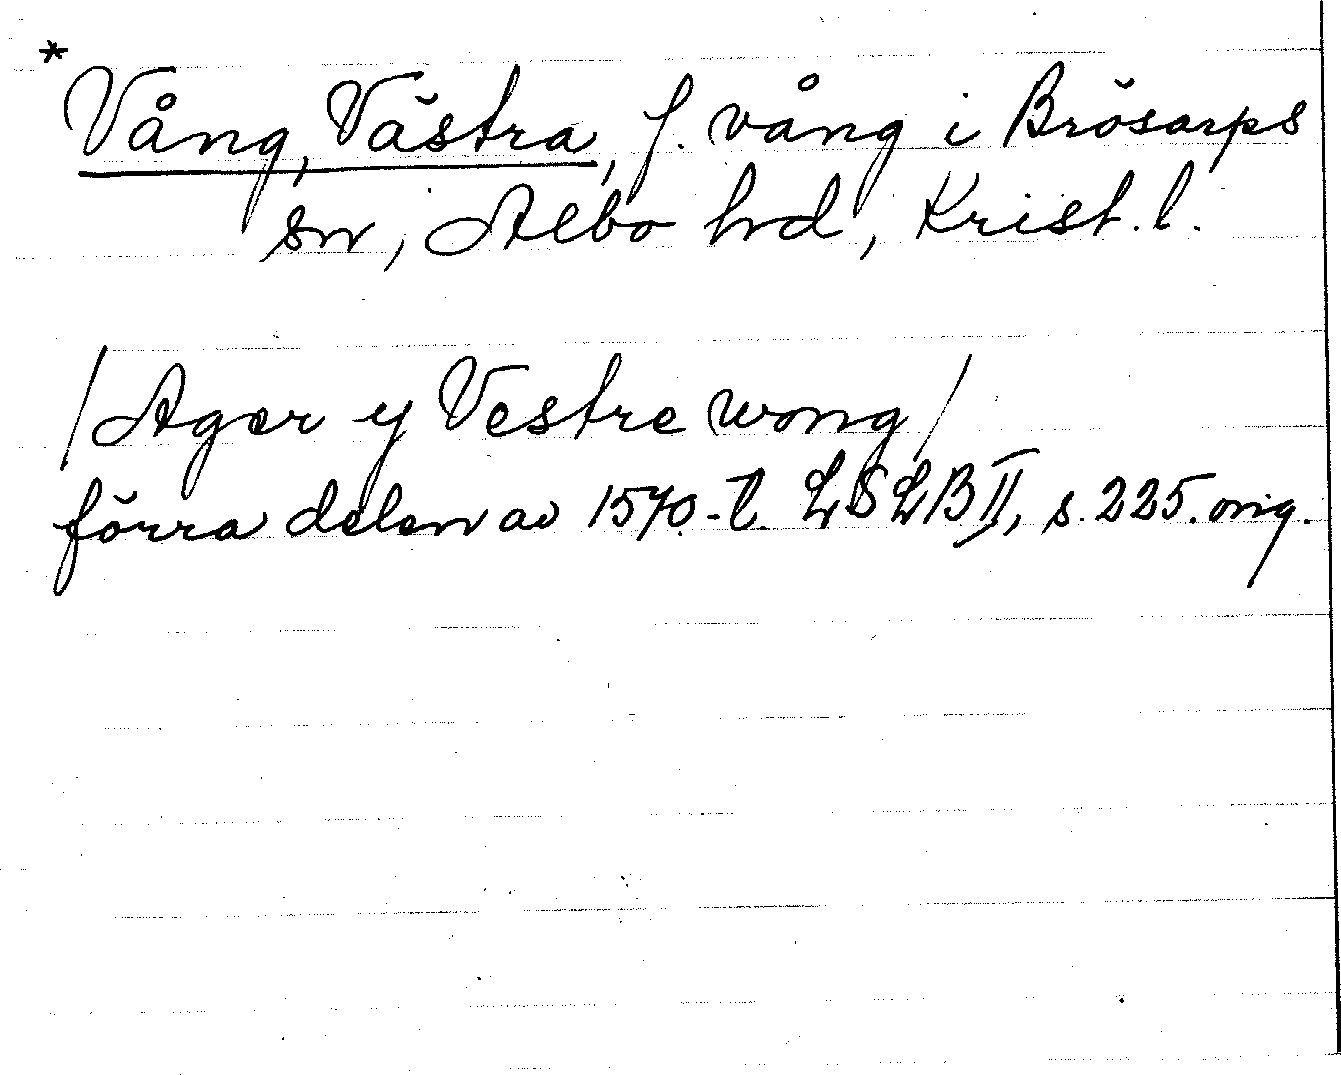 *
Vång, Västra, f. vång i Brösarps
sn, Albo hd, Krist. l.
/Ager y Vestre wong/
förra delen av 1570-t. LSLB II, s. 225. orig.